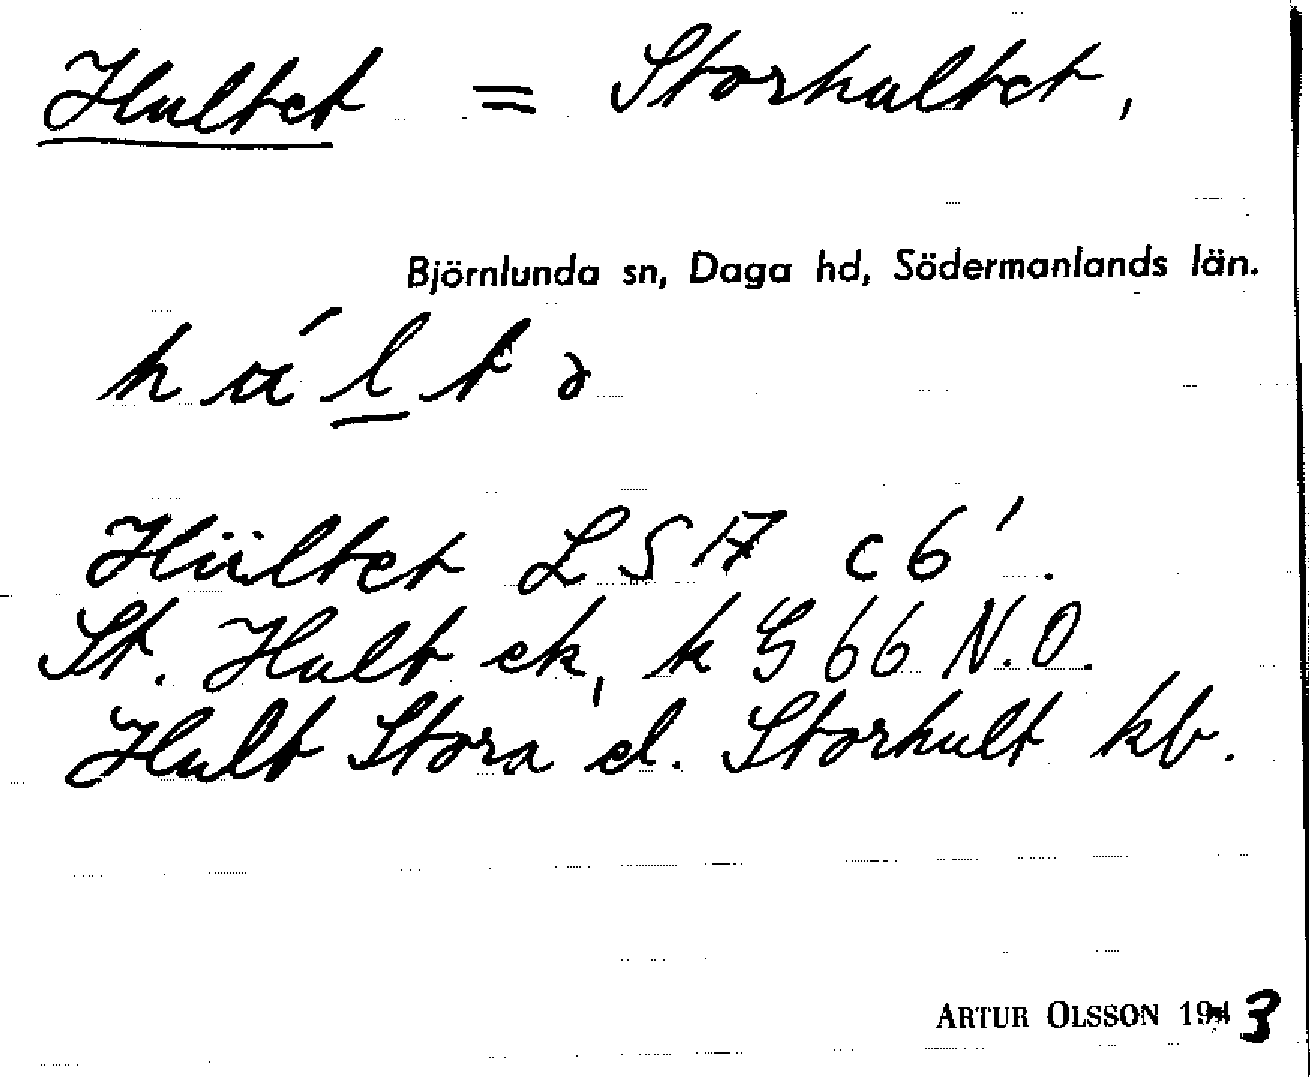 Hultet = Storhultet,
Björnlunda sn, Daga hd, Södermanlands län.
Hultet LSA c6'.
St. Hult ek, k G 66 N.O.
Hult Stora el. Storhult kb.
ARTUR OLSSON 1943